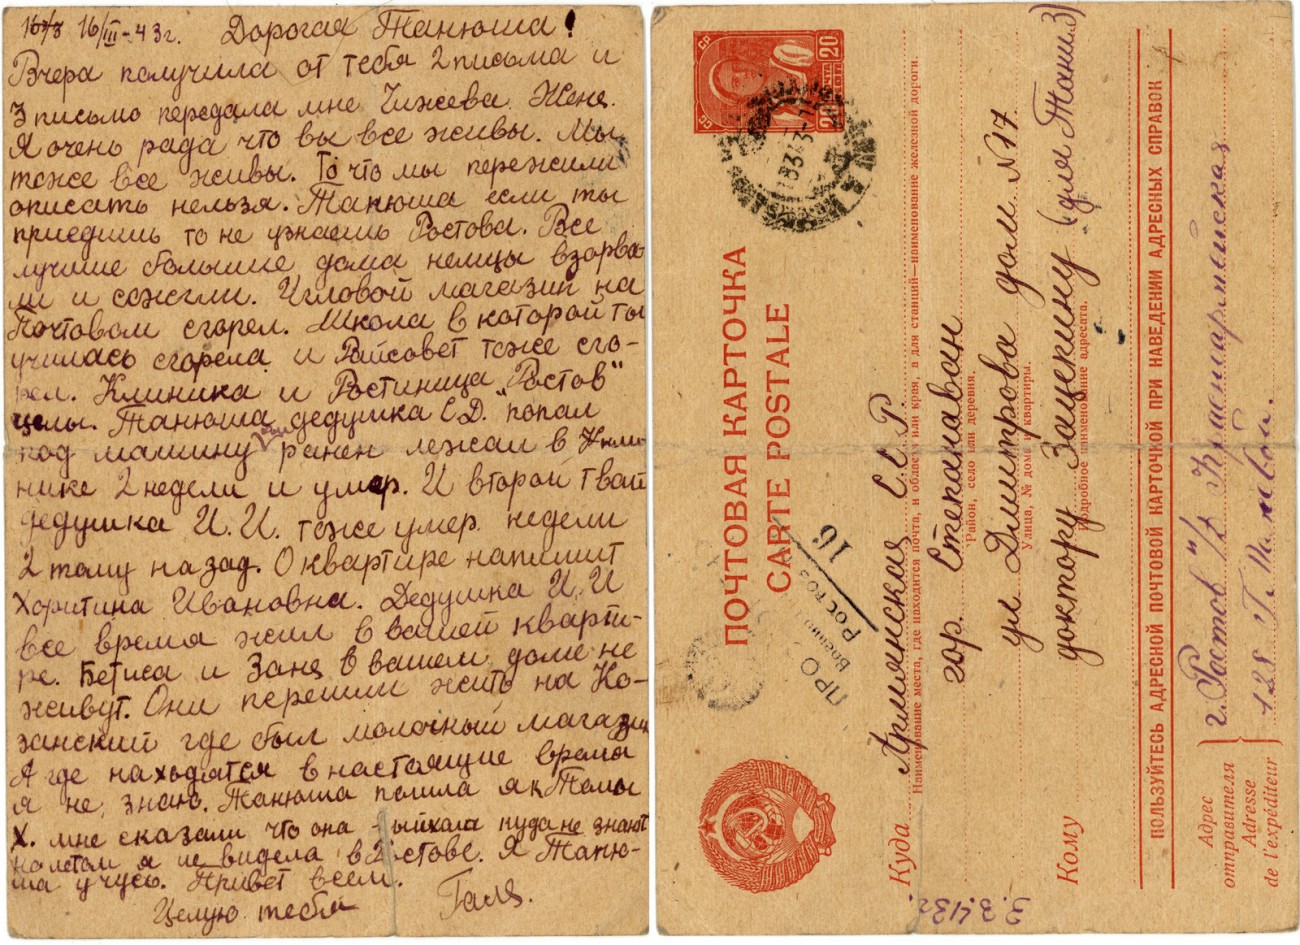 16/III-43г. Дорогая Танюша!
Вчера получила от тебя 2 письма и
3 письмо передала мне Чижева Женя.
Я очень рада что вы все живы. Мы
тоже все живы. То что мы пережили
описать нельзя. Танюша если ты
приедишь то не узнаешь Ростова. Все
лучшие большие дома немцы взорва-
ли и сожгли. Игловой магазин на
Почтовом сгорел. Школа в которой ты
училась сгорела и Райсовет тоже сго-
рел. Клиника и Гостиница „Ростов"
целы. Танюша дедушка С.Д. попал
под машину был ранен лежал в Кли-
нике 2 недели и умер. И второй твой
дедушка И.И. тоже умер недели
2 тому назад. О квартире напишит
Харитина Ивановна. Дедушка И.И
все время жил в вашей кварти-
ре. и в вашем доме не
живут. Они перешли жить на Ка-
занский где был молочный магазин
А где находятся в настоящие время
я не знаю. Танюша пошла я к Томы
Х. мне сказали что она выихала куда не знают
но летом я ие видела в Ростове. Я Таню-
ша учусь. Привет всем.
Целую тебя Галя.
СССР
20
ПОЧТА
ПОЧТОВАЯ КАРТОЧКА
CARTE POSTALE
ПРО
Военно
Ростов
16
Куда Армянская С.С.Р
Наименование места, где находится почта, и области или края, а для станций—наименование железной дороги.
гор. Степанаван
Район, село или деревня.
ул Димитрова дом N 17
Улица, № дома и квартиры.
Кому доктору Защекину (для Тани З)
Подробное наименование адресата.
ПОЛЬЗУЙТЕСЬ АДРЕСНОЙ ПОЧТОВОЙ КАРТОЧКОЙ ПРИ НАВЕДЕНИИ АДРЕСНЫХ СПРАВОК
Адрес
отправителя
Adresse
de l'expéditeur
г. Ростов н/Д Красноармейская
128
3.3.43г.